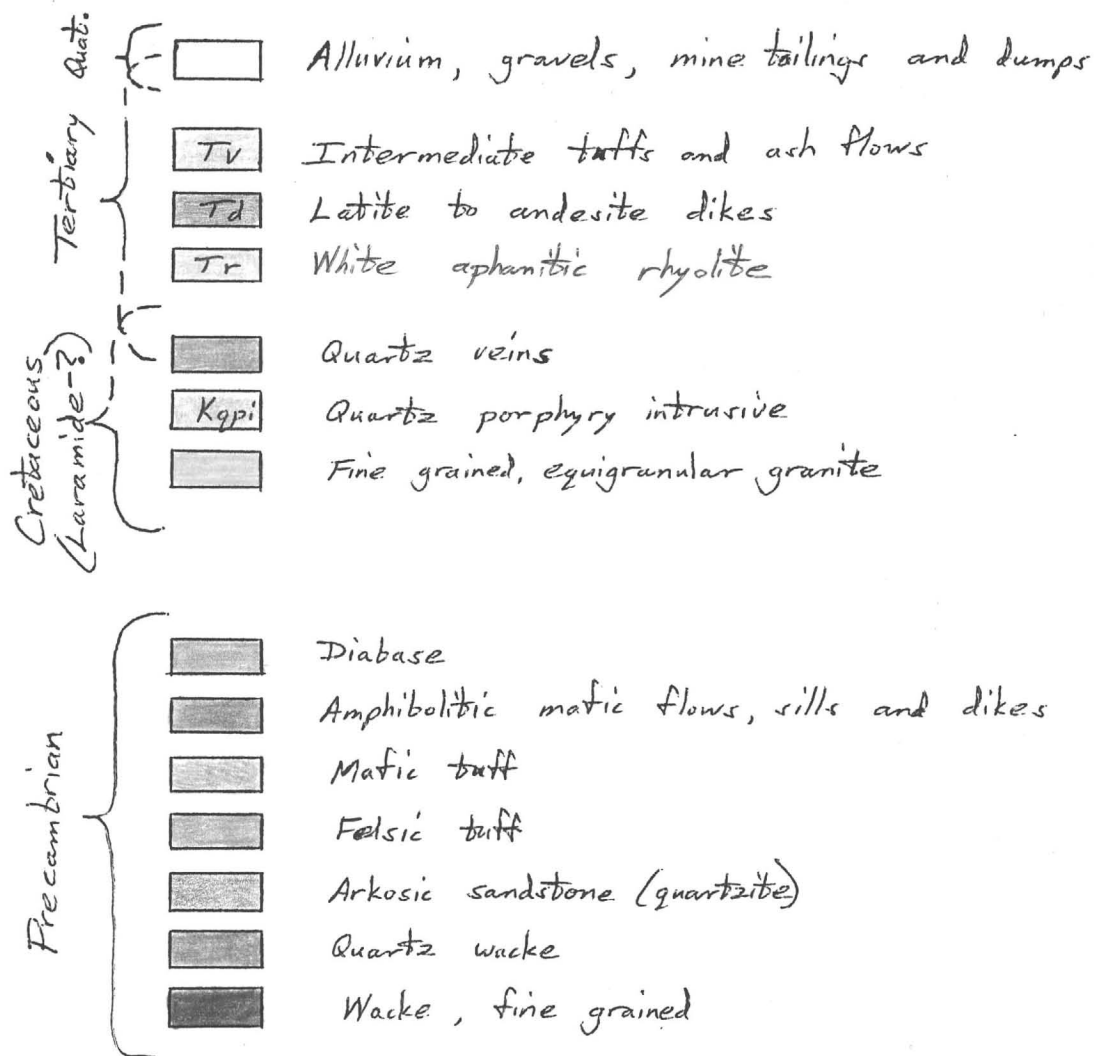 Quat.
Alluvium, gravels, mine tailings and dumps
Tertiary
Tv Intermediate tuffs and ash flows
Td Latite to andesite dikes
Tr White aphanitic rhyolite
Cretaceous
(Laramide-?)
Quartz veins
Kqpi Quartz porphyry intrusive
Fine grained, equigranular granite
Precambrian
Diabase
Amphibolitic mafic flows, sills and dikes
Mafic tuff
Felsic tuff
Arkosic sandstone (quartzite)
Quartz wacke
Wacke, fine grained